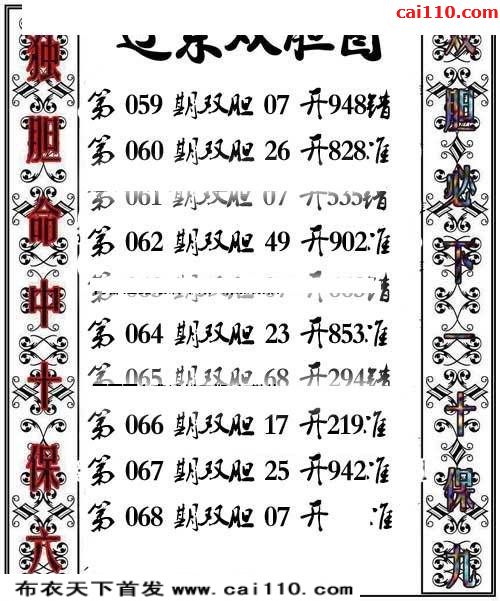 cai110.com
双胆图
第 059 期双胆 07 开948错
第 060 期双胆 26 开828准
第 061 期双胆 07 开535错
第 062 期双胆 49 开902准
第 064 期双胆 23 开853准
第 065 期双胆 68 开294错
第 066 期双胆 17 开219准
第 067 期双胆 25 开942准
第 068 期双胆 07 开 准
独胆命中十保六
双胆必下一十保九
布衣天下首发 www.cai110.com